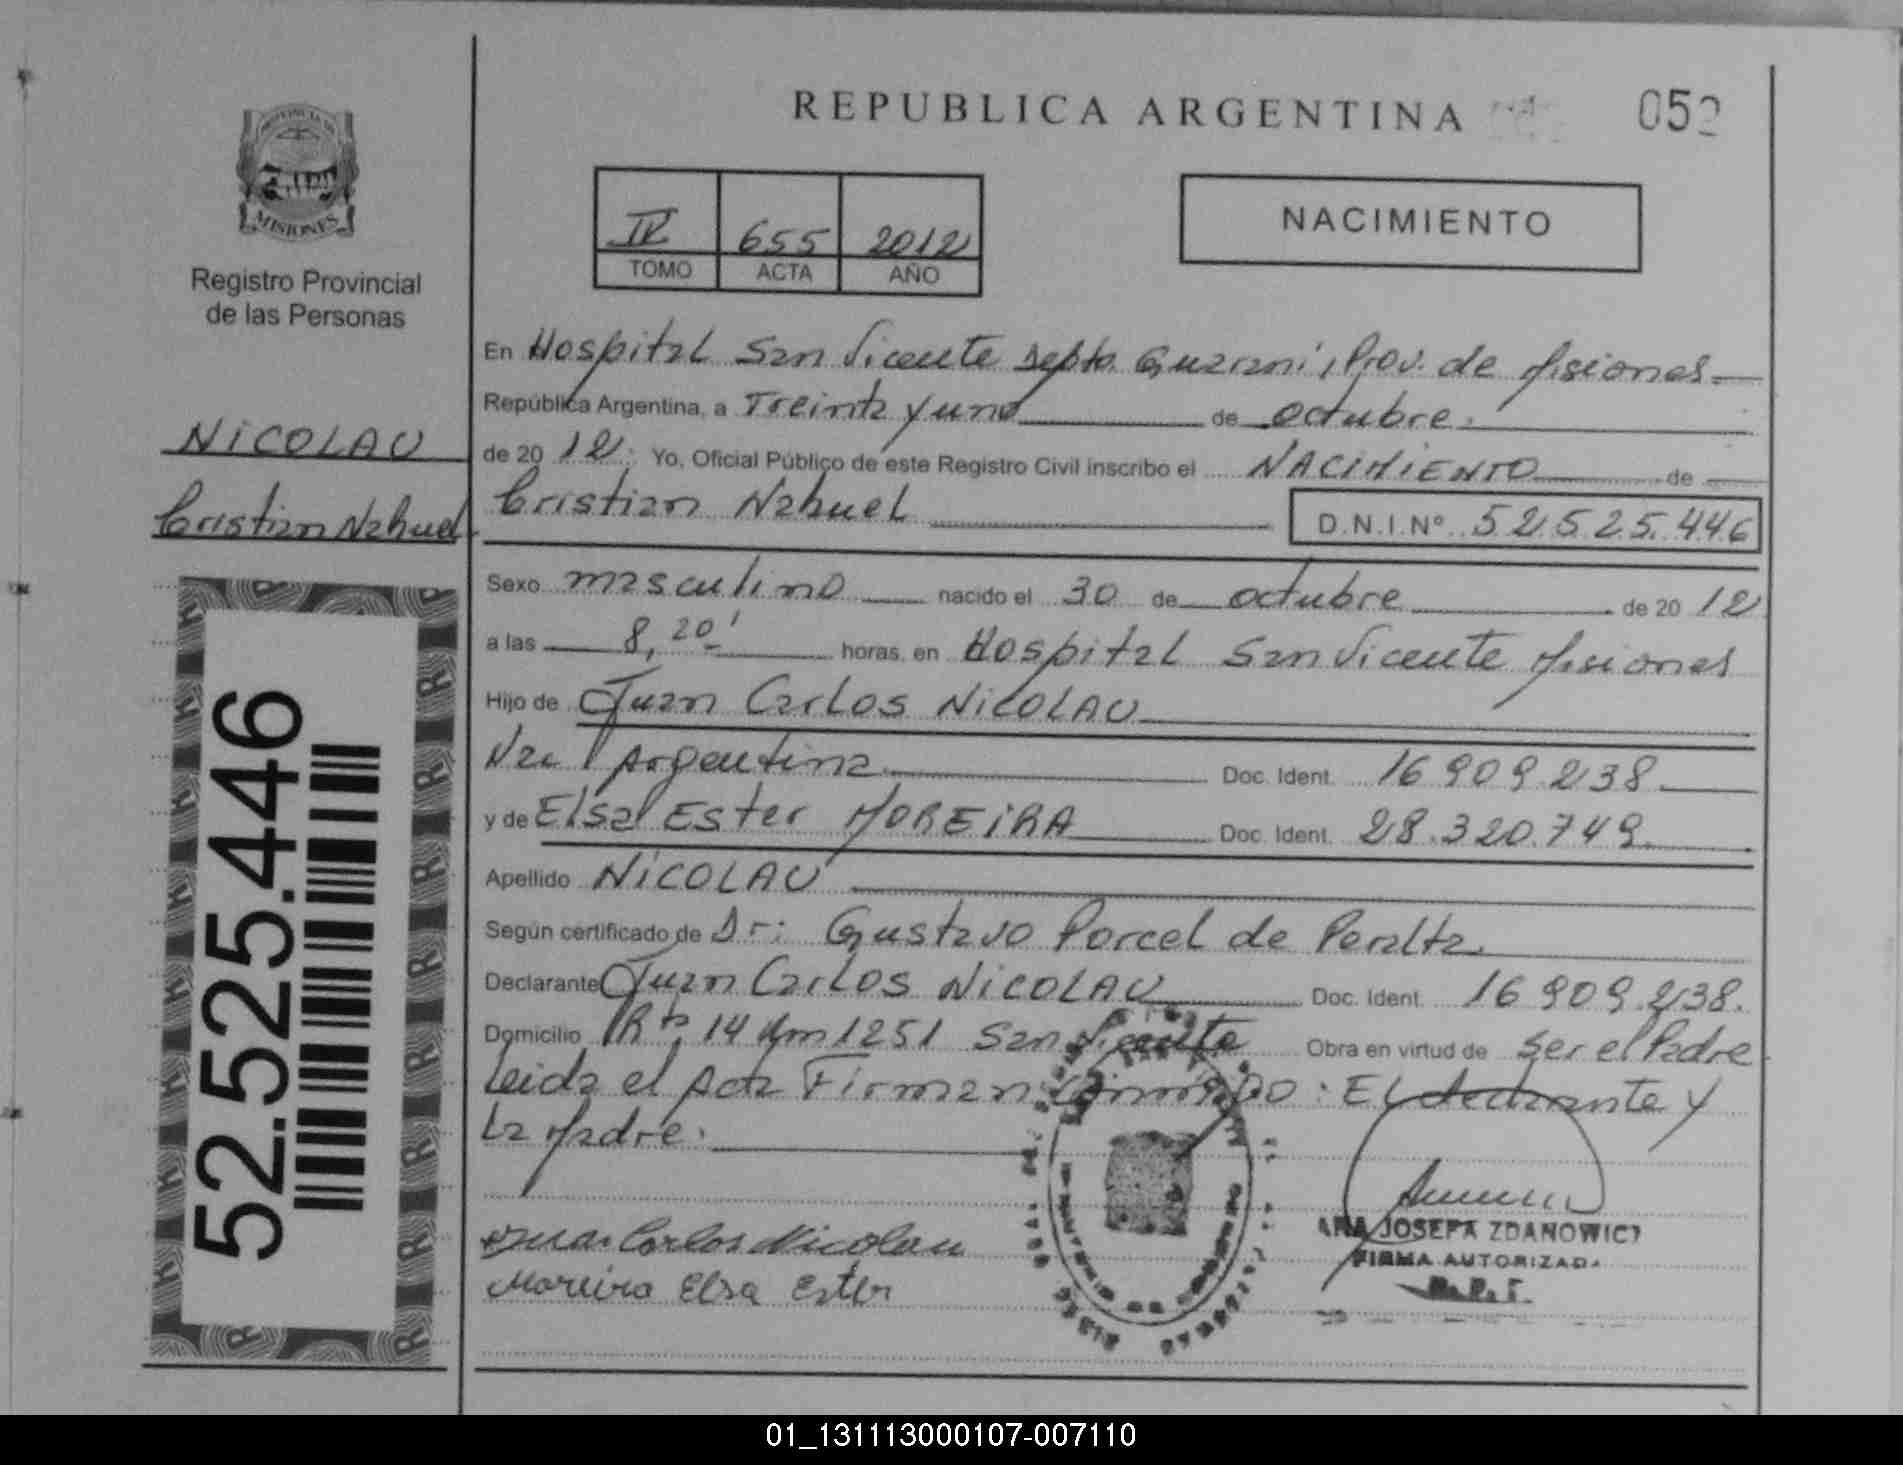 REPUBLICA ARGENTINA
052
PROVINCIA DE
MISIONES
Registro Provincial
de las Personas
NICOLAU
Cristian Nahuel
52.525.446
IV 655 2012
TOMO ACTA AÑO
NACIMIENTO
En Hospital San Vicente Depto. Guaraní, Prov. de Misiones
República Argentina, a Treinta y uno de octubre.
de 2012. Yo, Oficial Público de este Registro Civil inscribo el NACIMIENTO de
Cristian Nahuel D.N.I.Nº 52.525.446
Sexo masculino nacido el 30 de octubre de 2012
a las 8,20' horas, en Hospital San Vicente Misiones
Hijo de Juan Carlos NICOLAU
Nac Argentina Doc. Ident. 16 909 238
y de Elsa Ester MOREIRA Doc. Ident. 28.320.749.
Apellido NICOLAU
Según certificado de Dr: Gustavo Porcel de Peralta.
Declarante Juan Carlos NICOLAU Doc. Ident. 16 909 238.
Domicilio Rta. 14 Km 1251 San Vicente Obra en virtud de ser el Padre
Leida el Acta Firman Conmigo: El declarante y
La Madre.
Juan Carlos Nicolau
Moreira Elsa Ester
ANA JOSEFA ZDANOWICZ
FIRMA AUTORIZADA
01_131113000107-007110